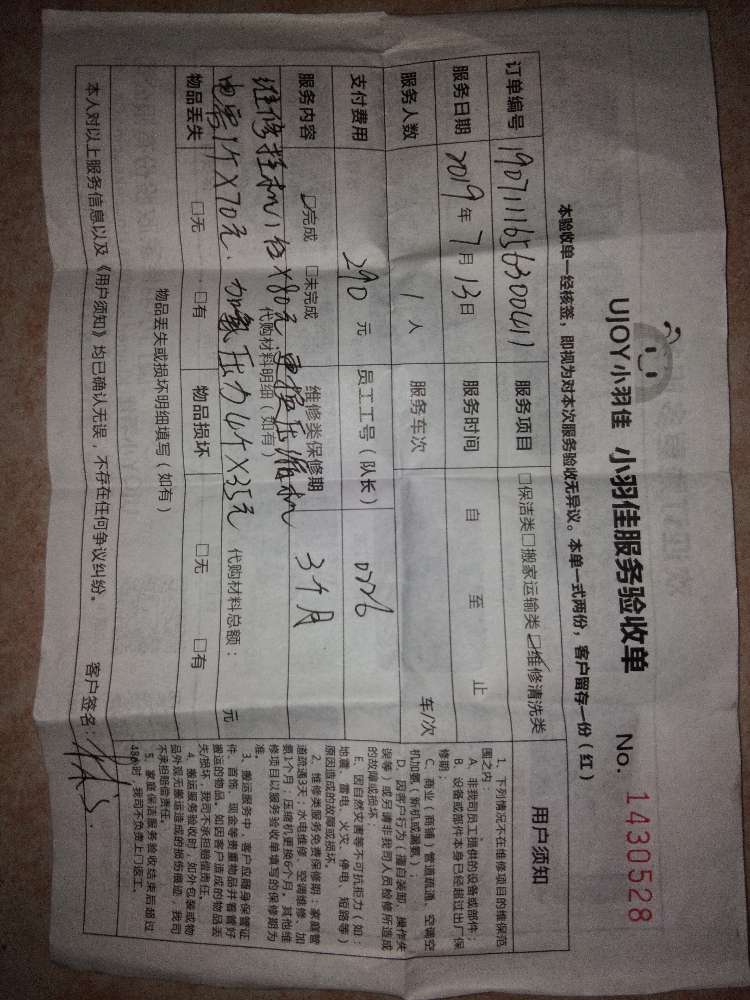 UJOY小羽佳 小羽佳服务验收单 No. 1430528
本验收单一经核签,即视为对本次服务验收无异议。本单一式两份,客户留存一份(红)
订单编号 服务项目 □保洁类□搬家运输类☑维修清洗类
服务日期 2019年7月13日 服务时间 自 至 止
服务人数 1人 服务车次 车/次
支付费用 290元 员工工号(队长)
服务内容 ☑完成 □未完成 维修类保修期 3个月
代购材料明细(如有)
维修挂机1台X80元 更换压缩机
电容1个X70元、加氟压力4个X35元 代购材料总额: 元
物品丢失 □无 □有 物品损坏 □无 □有
物品丢失或损坏明细填写(如有)
本人对以上服务信息以及《用户须知》均已确认无误,不存在任何争议纠纷。 客户签名:
用户须知
1、下列情况不在维修项目的维保范
围之内:
A、非我司员工提供的设备或部件;
B、设备或部件本身已经超过出厂保
修期;
C、商业(商铺)管道疏通、空调空
机加氨(新机或漏氨);
D、因客户行为(擅自装卸、操作失
误等)或另请非我司人员检修所造成
的故障或损坏;
E、因自然灾害等不可抗拒力(如:
地震、雷电、火灾、停电、短路等)
原因造成的故障或损坏。
2、维修类服务免费保修期:家庭管
道疏通3天;水电维修、空调维修、加
氨1个月;压缩机更换6个月,其他维
修项目以服务验收单填写的保修期为
准。
3、搬运服务中,客户应随身保管证
件、首饰、现金等贵重物品并看管好
搬运的物品。如因客户造成的物品丢
失/损坏,我司不承担赔偿责任。
4、搬运服务验收时,如外包装或物
品外观无搬运造成的损伤痕迹,我司
不承担赔偿责任。
5、家庭保洁服务验收结束后超过
48小时,我司不负责上门返工。